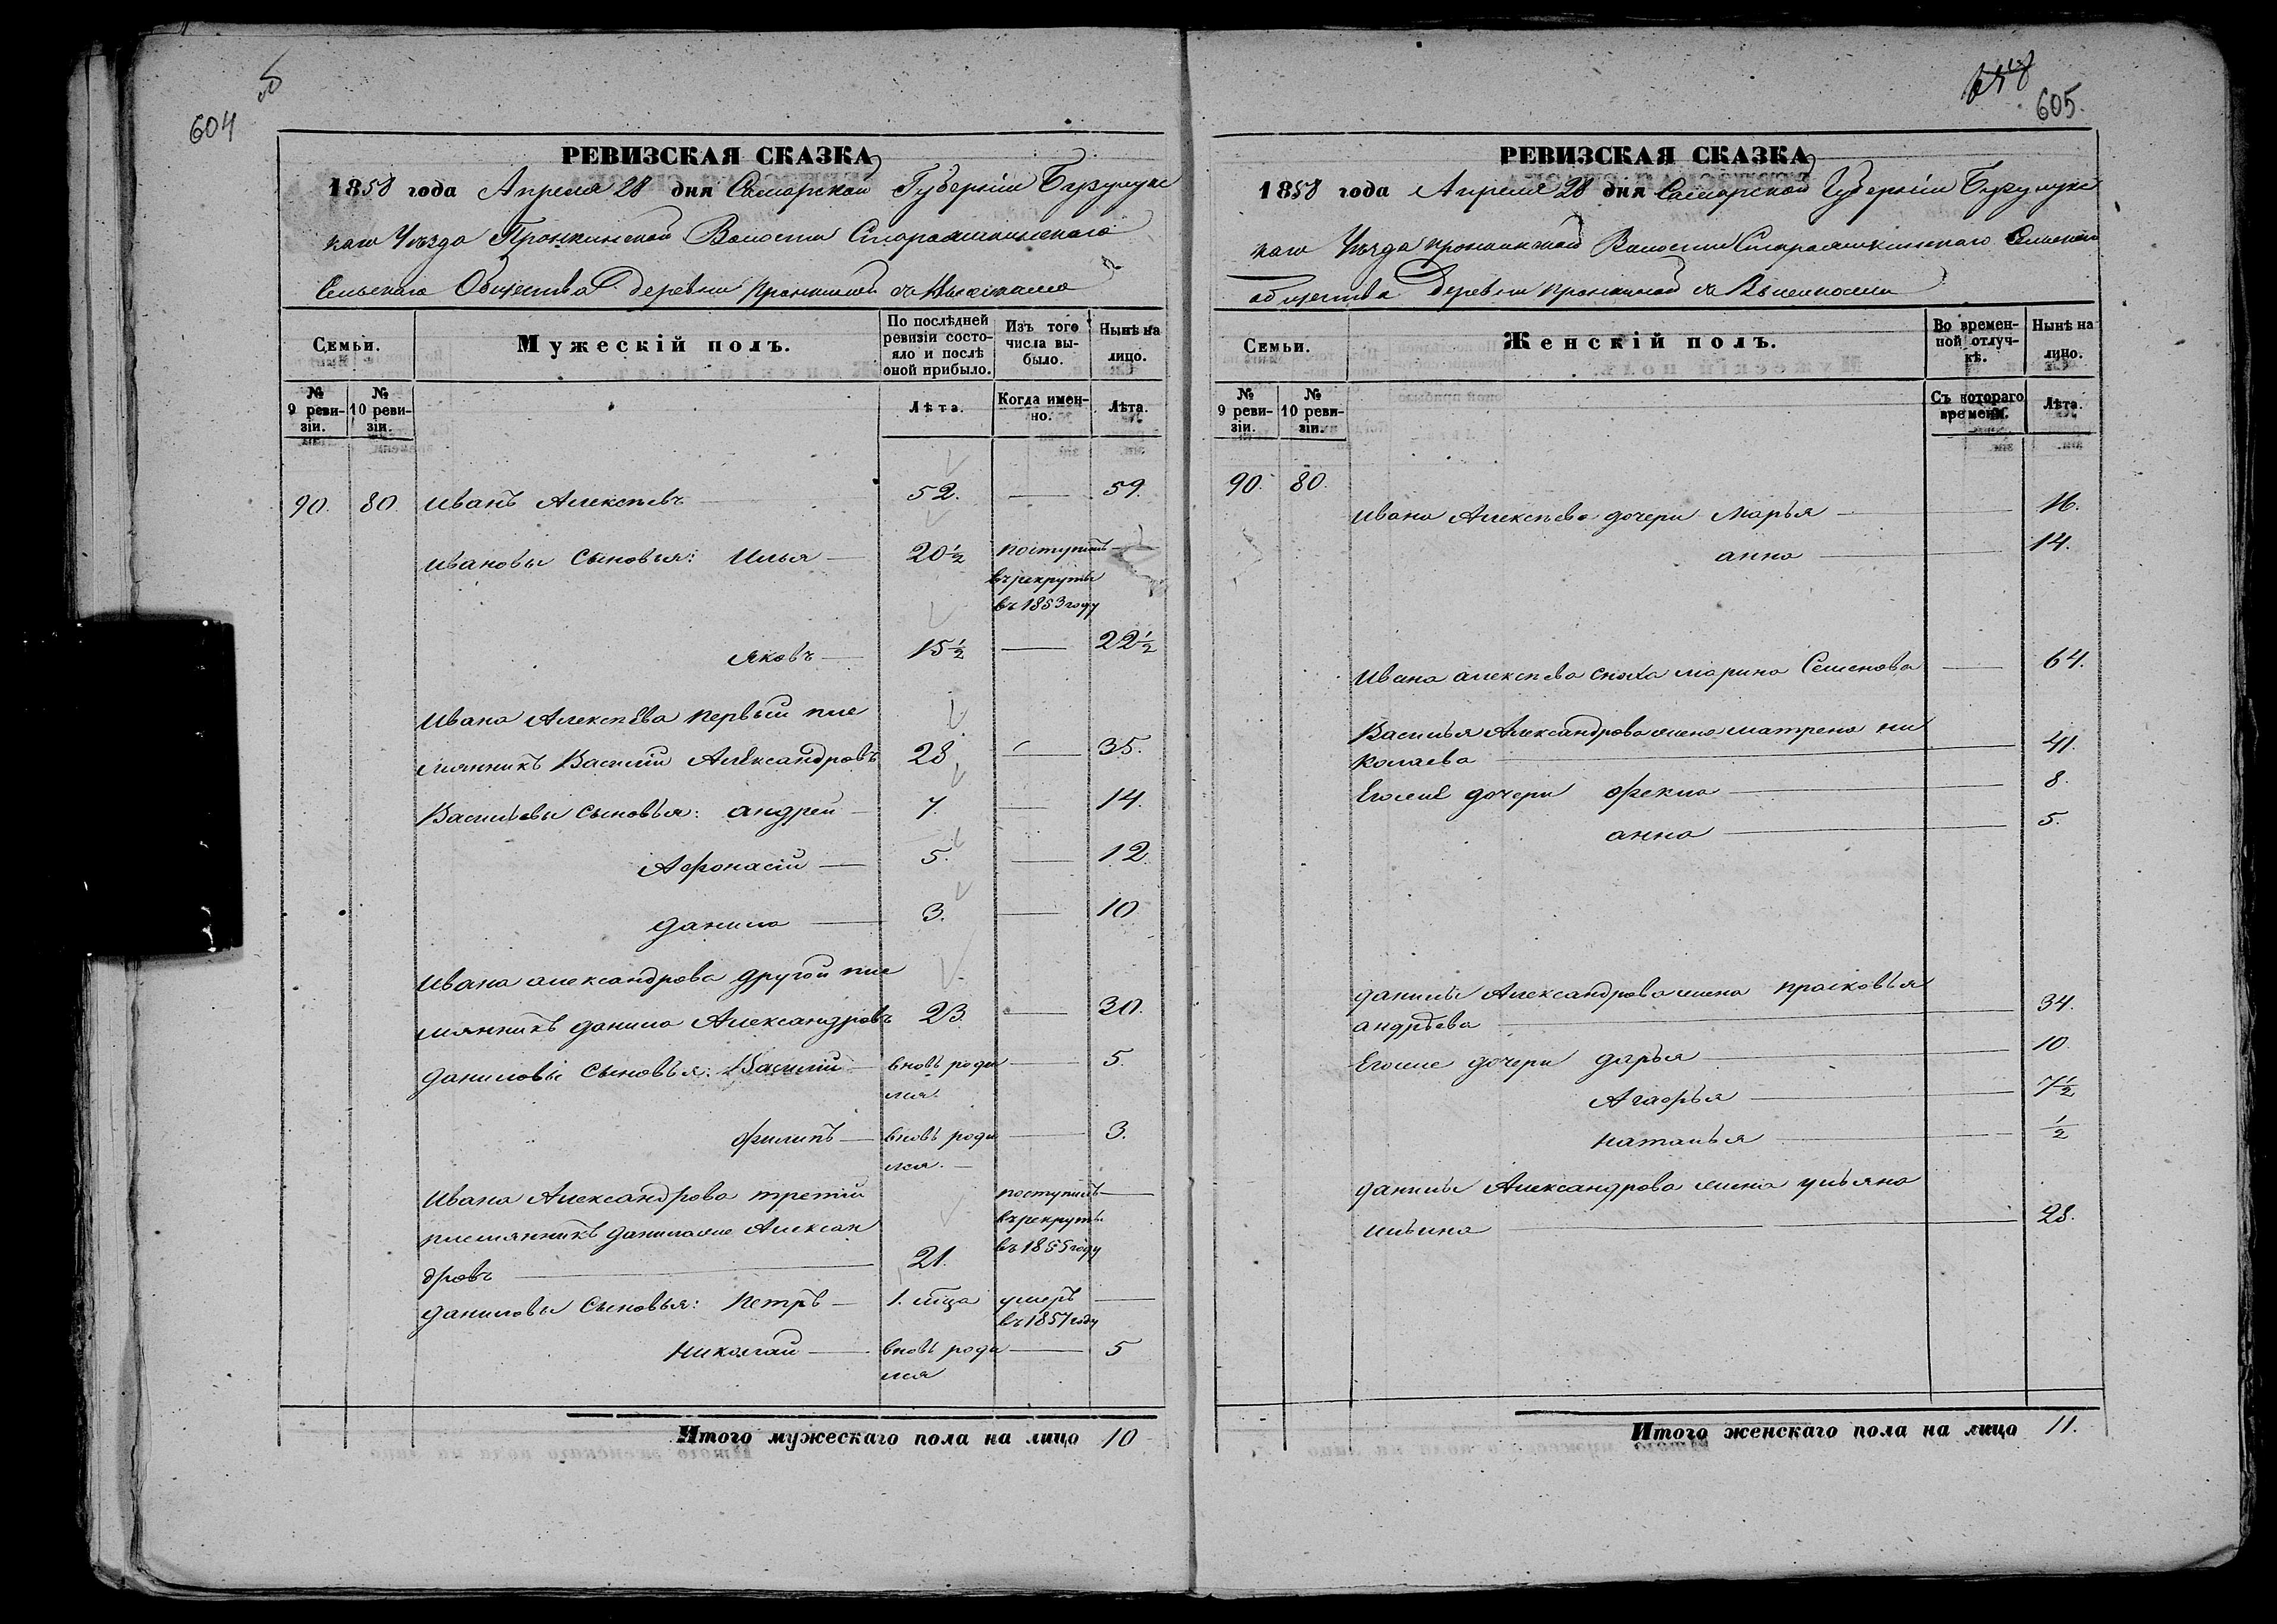 604
605.
РЕВИЗСКАЯ СКАЗКА
1858 года Апреля 28 дня Самарской Губерніи Бузулукс
каго Уѣзда Пронкинской Волости
Сельскаго Общества деревни Пронкиной съ
Семьи.
Мужескій полъ.
По послѣдней ревизіи состояло и послѣ оной прибыло.
Изъ того числа выбыло.
Нынѣ на лицо.
№ 9 ревизіи.
№ 10 ревизіи.
Лѣта.
Когда именно.
Лѣта.
90. 80. Иванъ Алексѣевъ 52. 59.
Ивановы сыновья: Илья 20½ поступилъ
въ рекруты
въ 1853 году
Яковъ 15½ 22½
Ивана Алексѣева первый пле
мянникъ Василій Александровъ 28 35.
Васильевы сыновья: андрей 7. 14.
Афонасій 5. 12.
данило 3. 10
Ивана александрова другой пле
мянникъ данило Александровъ 23. 30.
даниловы сыновья: Василій вновь роди 5.
лся.
филипъ вновь роди 3.
лся.
Ивана Александрова третій поступилъ
племянникъ данило же Алексан въ рекруты
въ 1855 году
дровъ 21.
даниловы сыновья: Петръ 1. м̃ца умеръ
въ 1857 году
николай вновь роди 5
лся
Итого мужескаго пола на лицо 10
РЕВИЗСКАЯ СКАЗКА
1858 года Апреля 28 дня Самарской Губерніи Бузулукс
каго Уѣзда пронкинской Волости Сельскаго
общества деревни пронкиной съ Выселками
Семьи.
Женскій полъ.
Во временной отлучкѣ.
Нынѣ на лицо.
№ 9 ревизіи.
№ 10 ревизіи.
Съ котораго времени.
Лѣта.
90. 80.
Ивана Алексѣева дочери Марья 16.
анна 14.
Ивана алексѣева сноха марина Семенова 64.
Василья Александрова жена матрена ни
колаева 41.
Его же дочери фекла 8.
анна 5.
данилы Александрова жена прасковья
андрѣева 34.
Его же дочери дарья 10
Агафья 7½
наталья ½
данилы Александрова жена ульяна
ильина 28.
Итого женскаго пола на лицо 11.